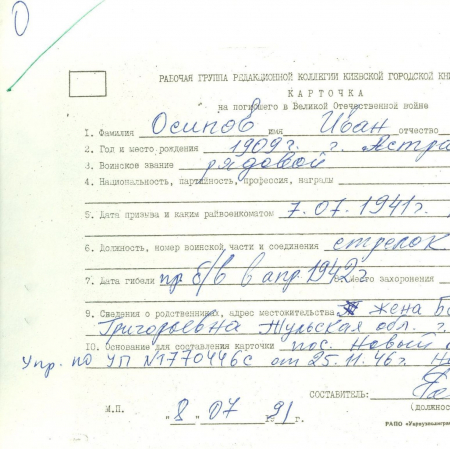 РАБОЧАЯ ГРУППА РЕДАКЦИОННОЙ КОЛЛЕГИИ КИЕВСКОЙ ГОРОДСКОЙ КНИ
КАРТОЧКА
на погибшего в Великой Отечественной войне
1. Фамилия Осипов имя Иван отчество
2. Год и место рождения 1909г. г. Астра
3. Воинское звание рядовой
4. Национальность, партийность, профессия, награды
5. Дата призыва и каким райвоенкоматом 7.07.1941г.
6. Должность, номер воинской части и соединения стрелок
7. Дата гибели пр. б/в в апр. 1942г. место захоронения
9. Сведения о родственниках, адрес местожительства жена
Григорьевна Тульская обл. г.
10. Основание для составления карточки пос. Новый
Упр. по УП N1770446с от 25.11.46г.
СОСТАВИТЕЛЬ:
(ДОЛЖНОС
М.П. "8" 07 1991 г.
РАПО «Укрвузполиграф